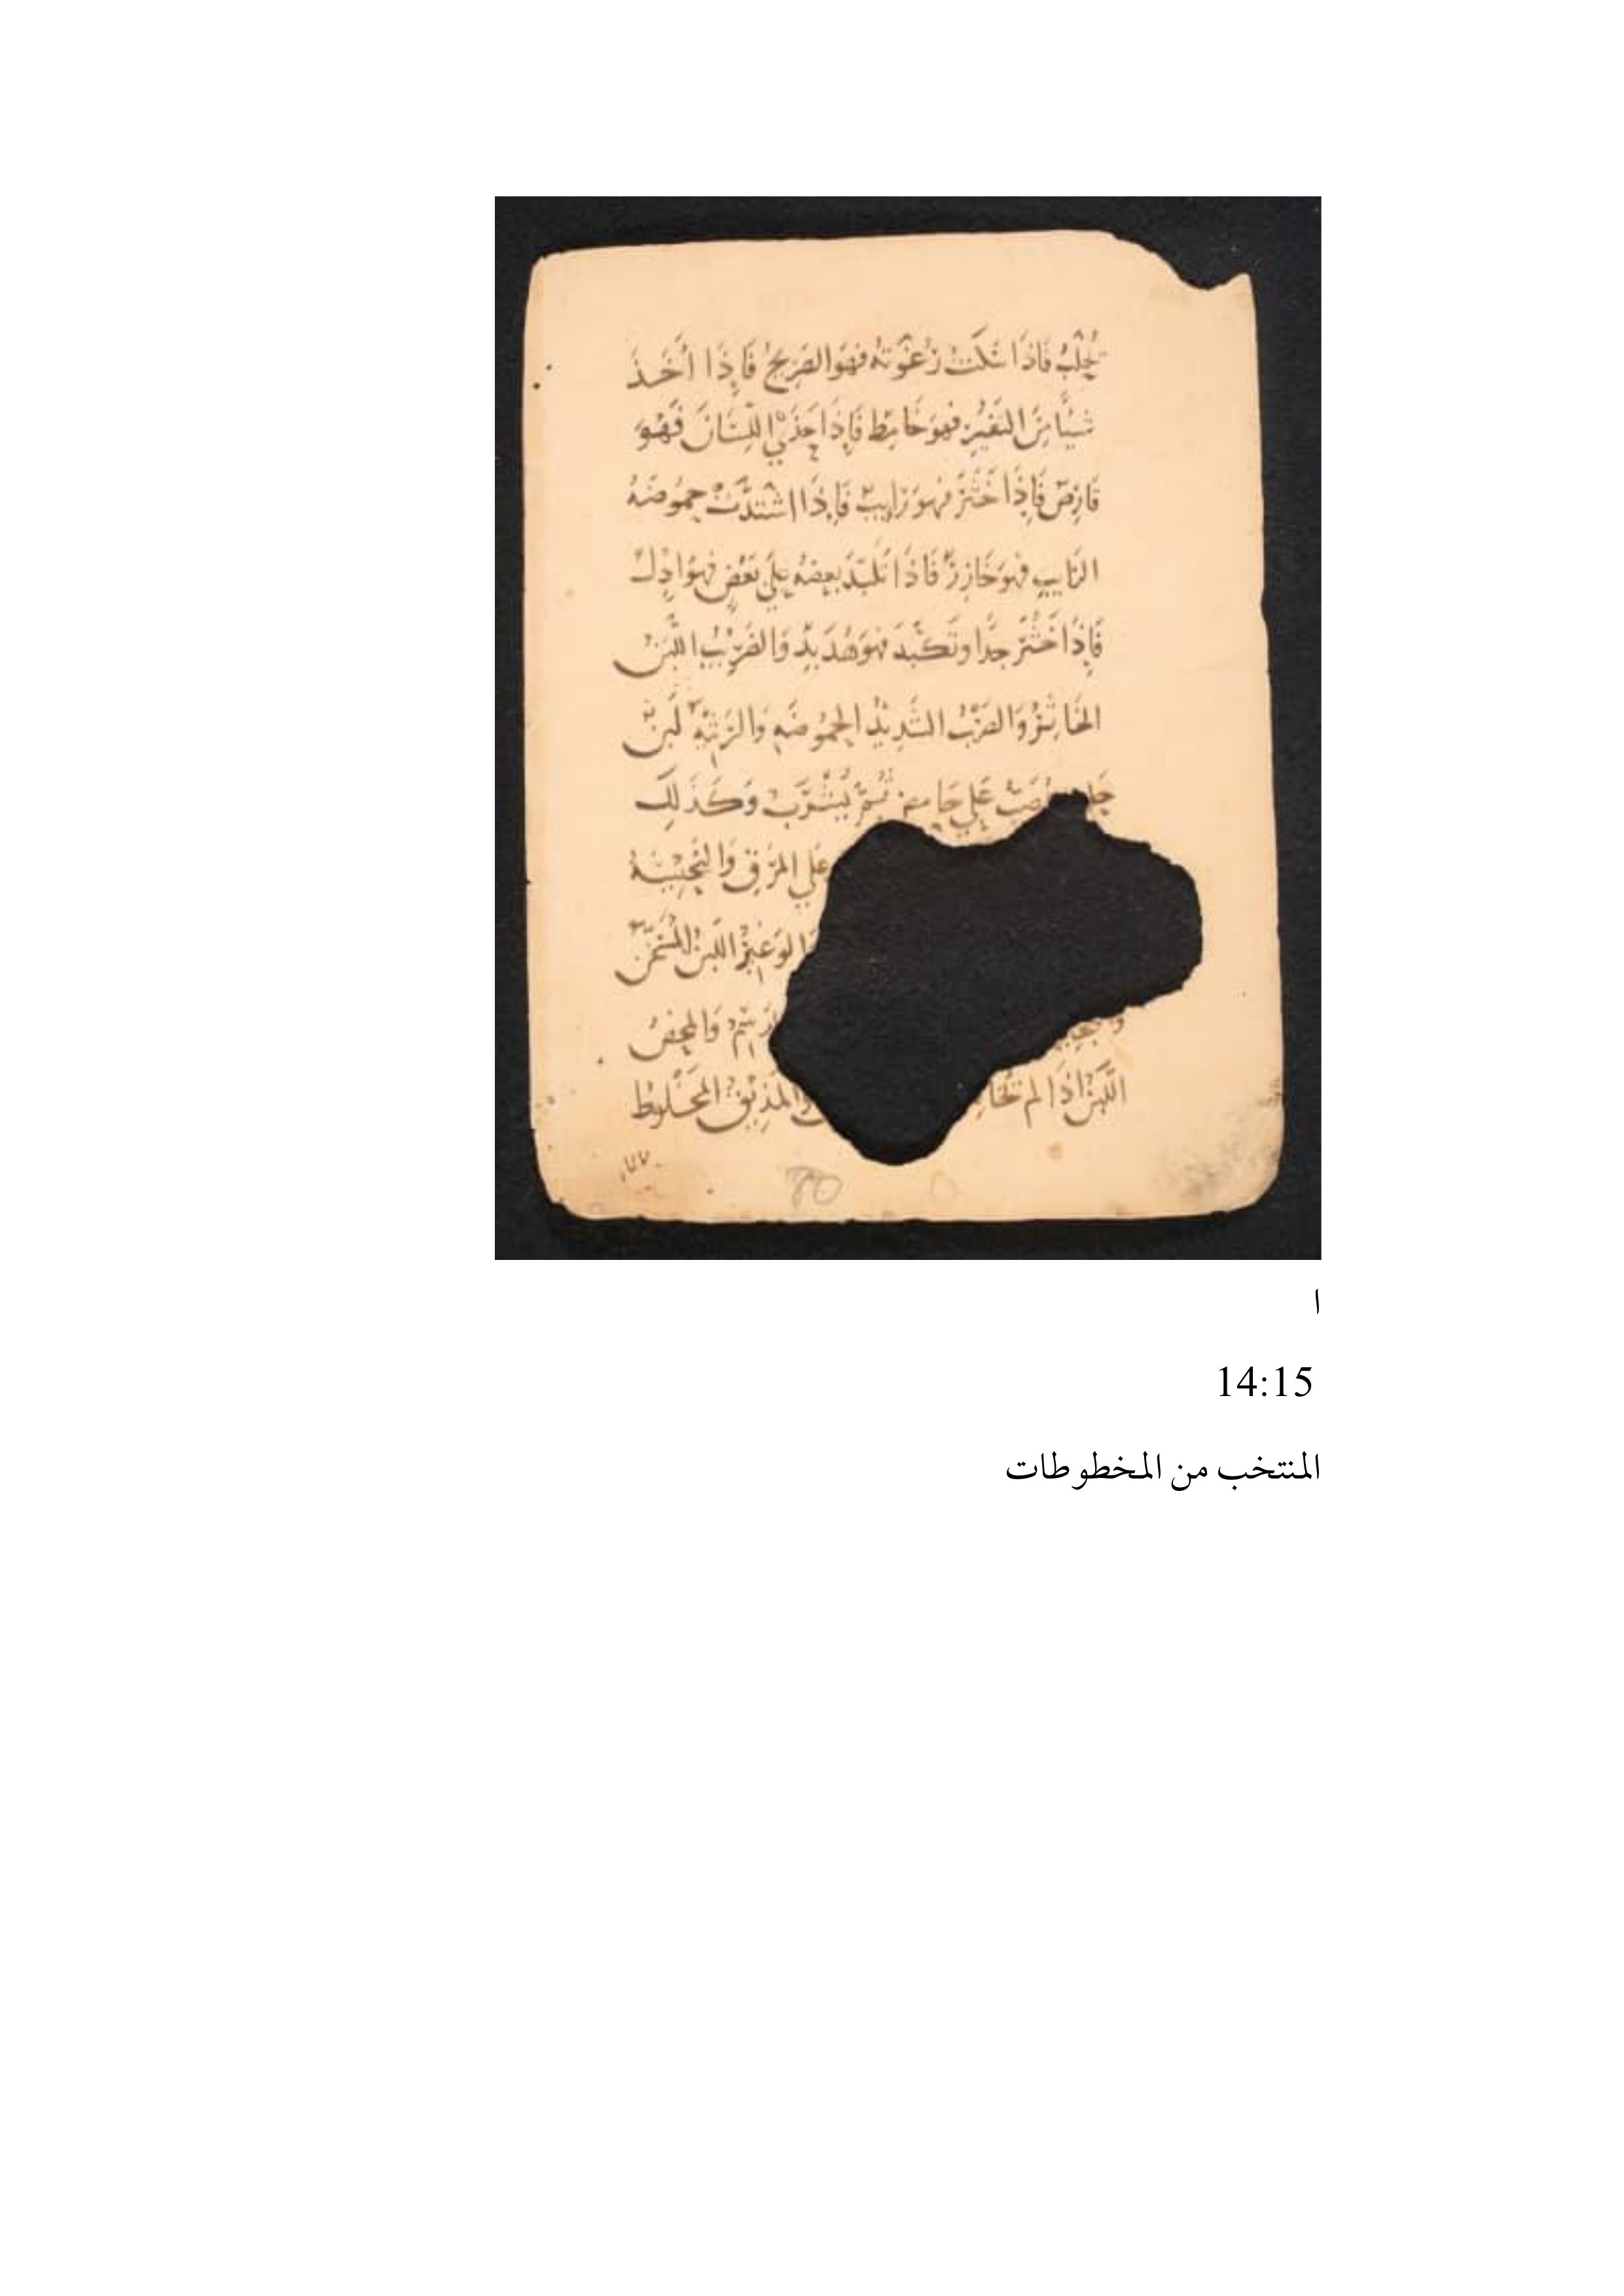 يُحْلَبُ فَاذَا سَكَنَتْ رُغْوَتُهُ فهوَ الصَّرِيحُ فَاِذَا أَخَذَ
شَيْئًا مِنَ التَّغَيُّرِ فهوَ خَامِطٌ فَاِذَا حَذَي اللِّسَانَ فَهُوَ
قَارِصٌ فَاِذَا خَثُرَ فهوَ رَايِبٌ فَاِذَا اشْتَدَّتْ حموُضَهُ
الرَّايِبِ فهوَ حَازِرٌ فَاذَا تَلَبَّدَ بعضهُ علَي بَعْضٍ فهوَ ادِلٌ
فَاِذَا خَثُرَ جدًّا وتَكَبَّدَ فهوَ هُدَبِدٌ وَالضَّرِيْبُ اللَّبَنُ
الخَاثِرُ وَالصَّرْبُ الشَّدِيْدُ الحمُوضَهِ وَالرَّثِيَّهُ لَبَنٌ
يُصَبُّ عَلي حَامِضٍ ثُمَّ يُشْرَبُ وَكَذَلِكَ
علَي المرَقِ وَالنَّجِيْسَهُ
الوَغِيْرُ اللَّبَنُ المُسَخَّنُ
وَالمحضُ
اللَّبَنُ اذَا لم وَالمَذِيْقُ المخَلوُطُ
80
ا
14:15
المنتخب من المخطوطات